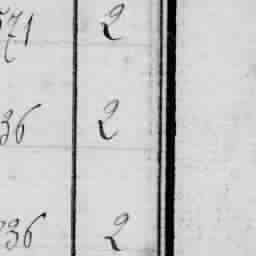 571 2
36 2
236 2